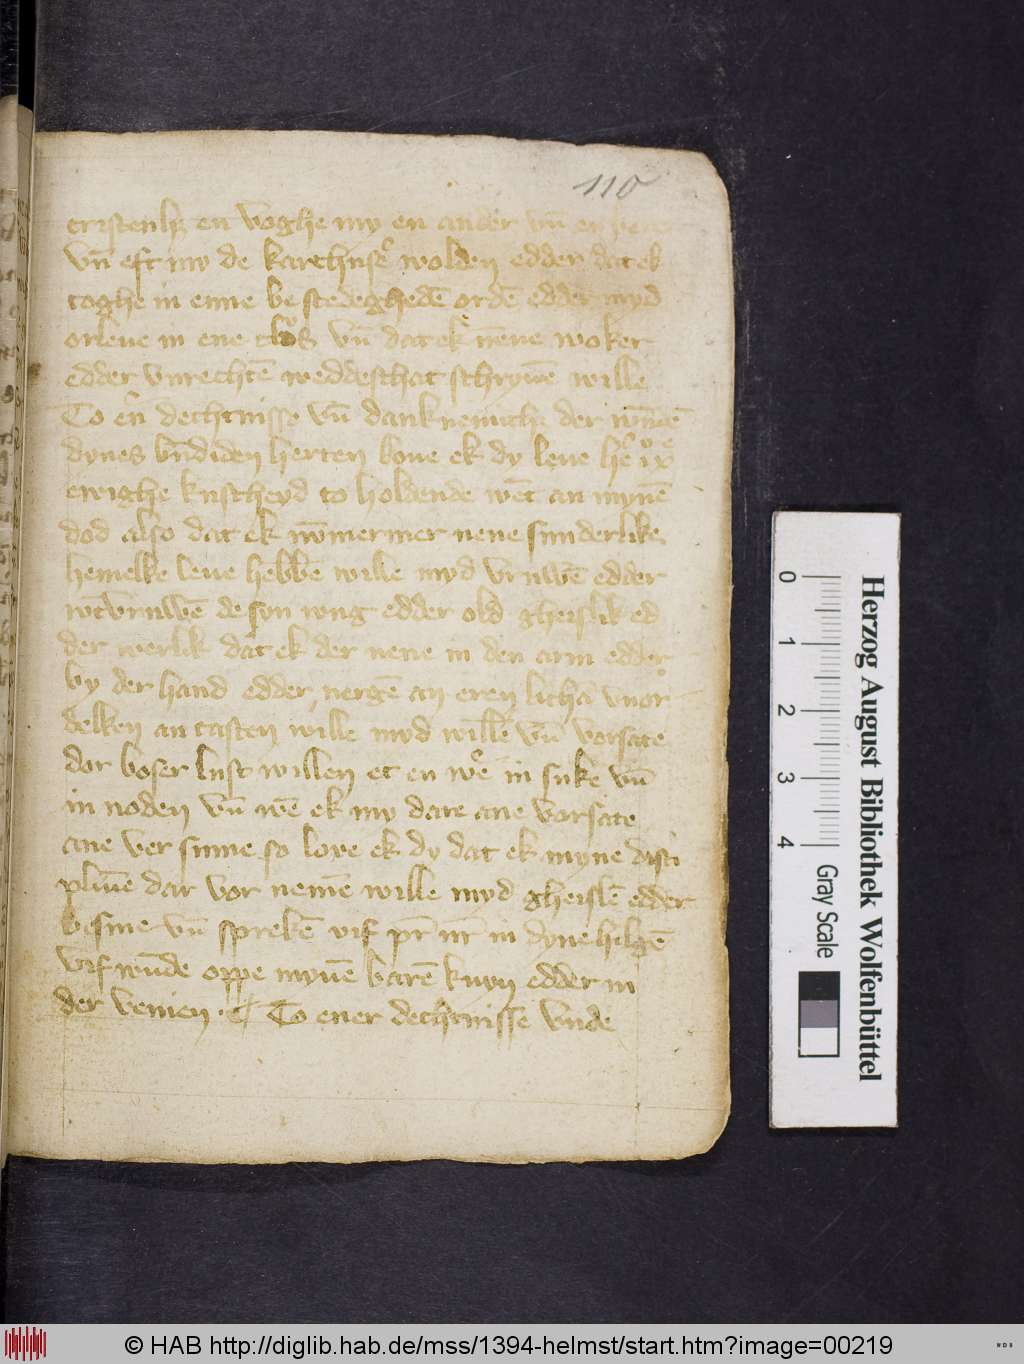 110
en voghe my en ander vn̄
vn̄ eft my de karthuser wolden edder dat ek
toghe in enne bestedeghedē ordē edder myd
orleue in ene vn̄ dat ek nene woker
edder vnrechtē weddeschat schryuē wille
To dechtnisse vn̄ danknemich der
dynes herten loue ek dy leue
ewighe kuscheyd to holdende wēt an mynē
dod also dat ek nv̄mermer nene sunderlike
hemelke leue hebbē wille myd vruwē edder
de syn iung edder old gheislik ed
der werlik dat ek der nene in den arm edder
by der hand edder nergē an eren lichā vnor
delken an tasten wille myd willē vn̄ vorsate
dor boser lust willen et en wē in suke vn̄
in noden vn̄ wē ek my dare ane vorsate
ane ver sume so loue ek dy dat ek myne disci
plinē dar vor nemē wille myd gheislē edder
besme vn̄ sprekē vif pr̄ nr̄ in dyne hilgē
vif wūde oppe mynē barē knyn edder in
der venien. To ener dechtnisse vnde
0 1 2 3 4
Gray Scale
Herzog August Bibliothek Wolfenbüttel
© HAB http://diglib.hab.de/mss/1394-helmst/start.htm?image=00219